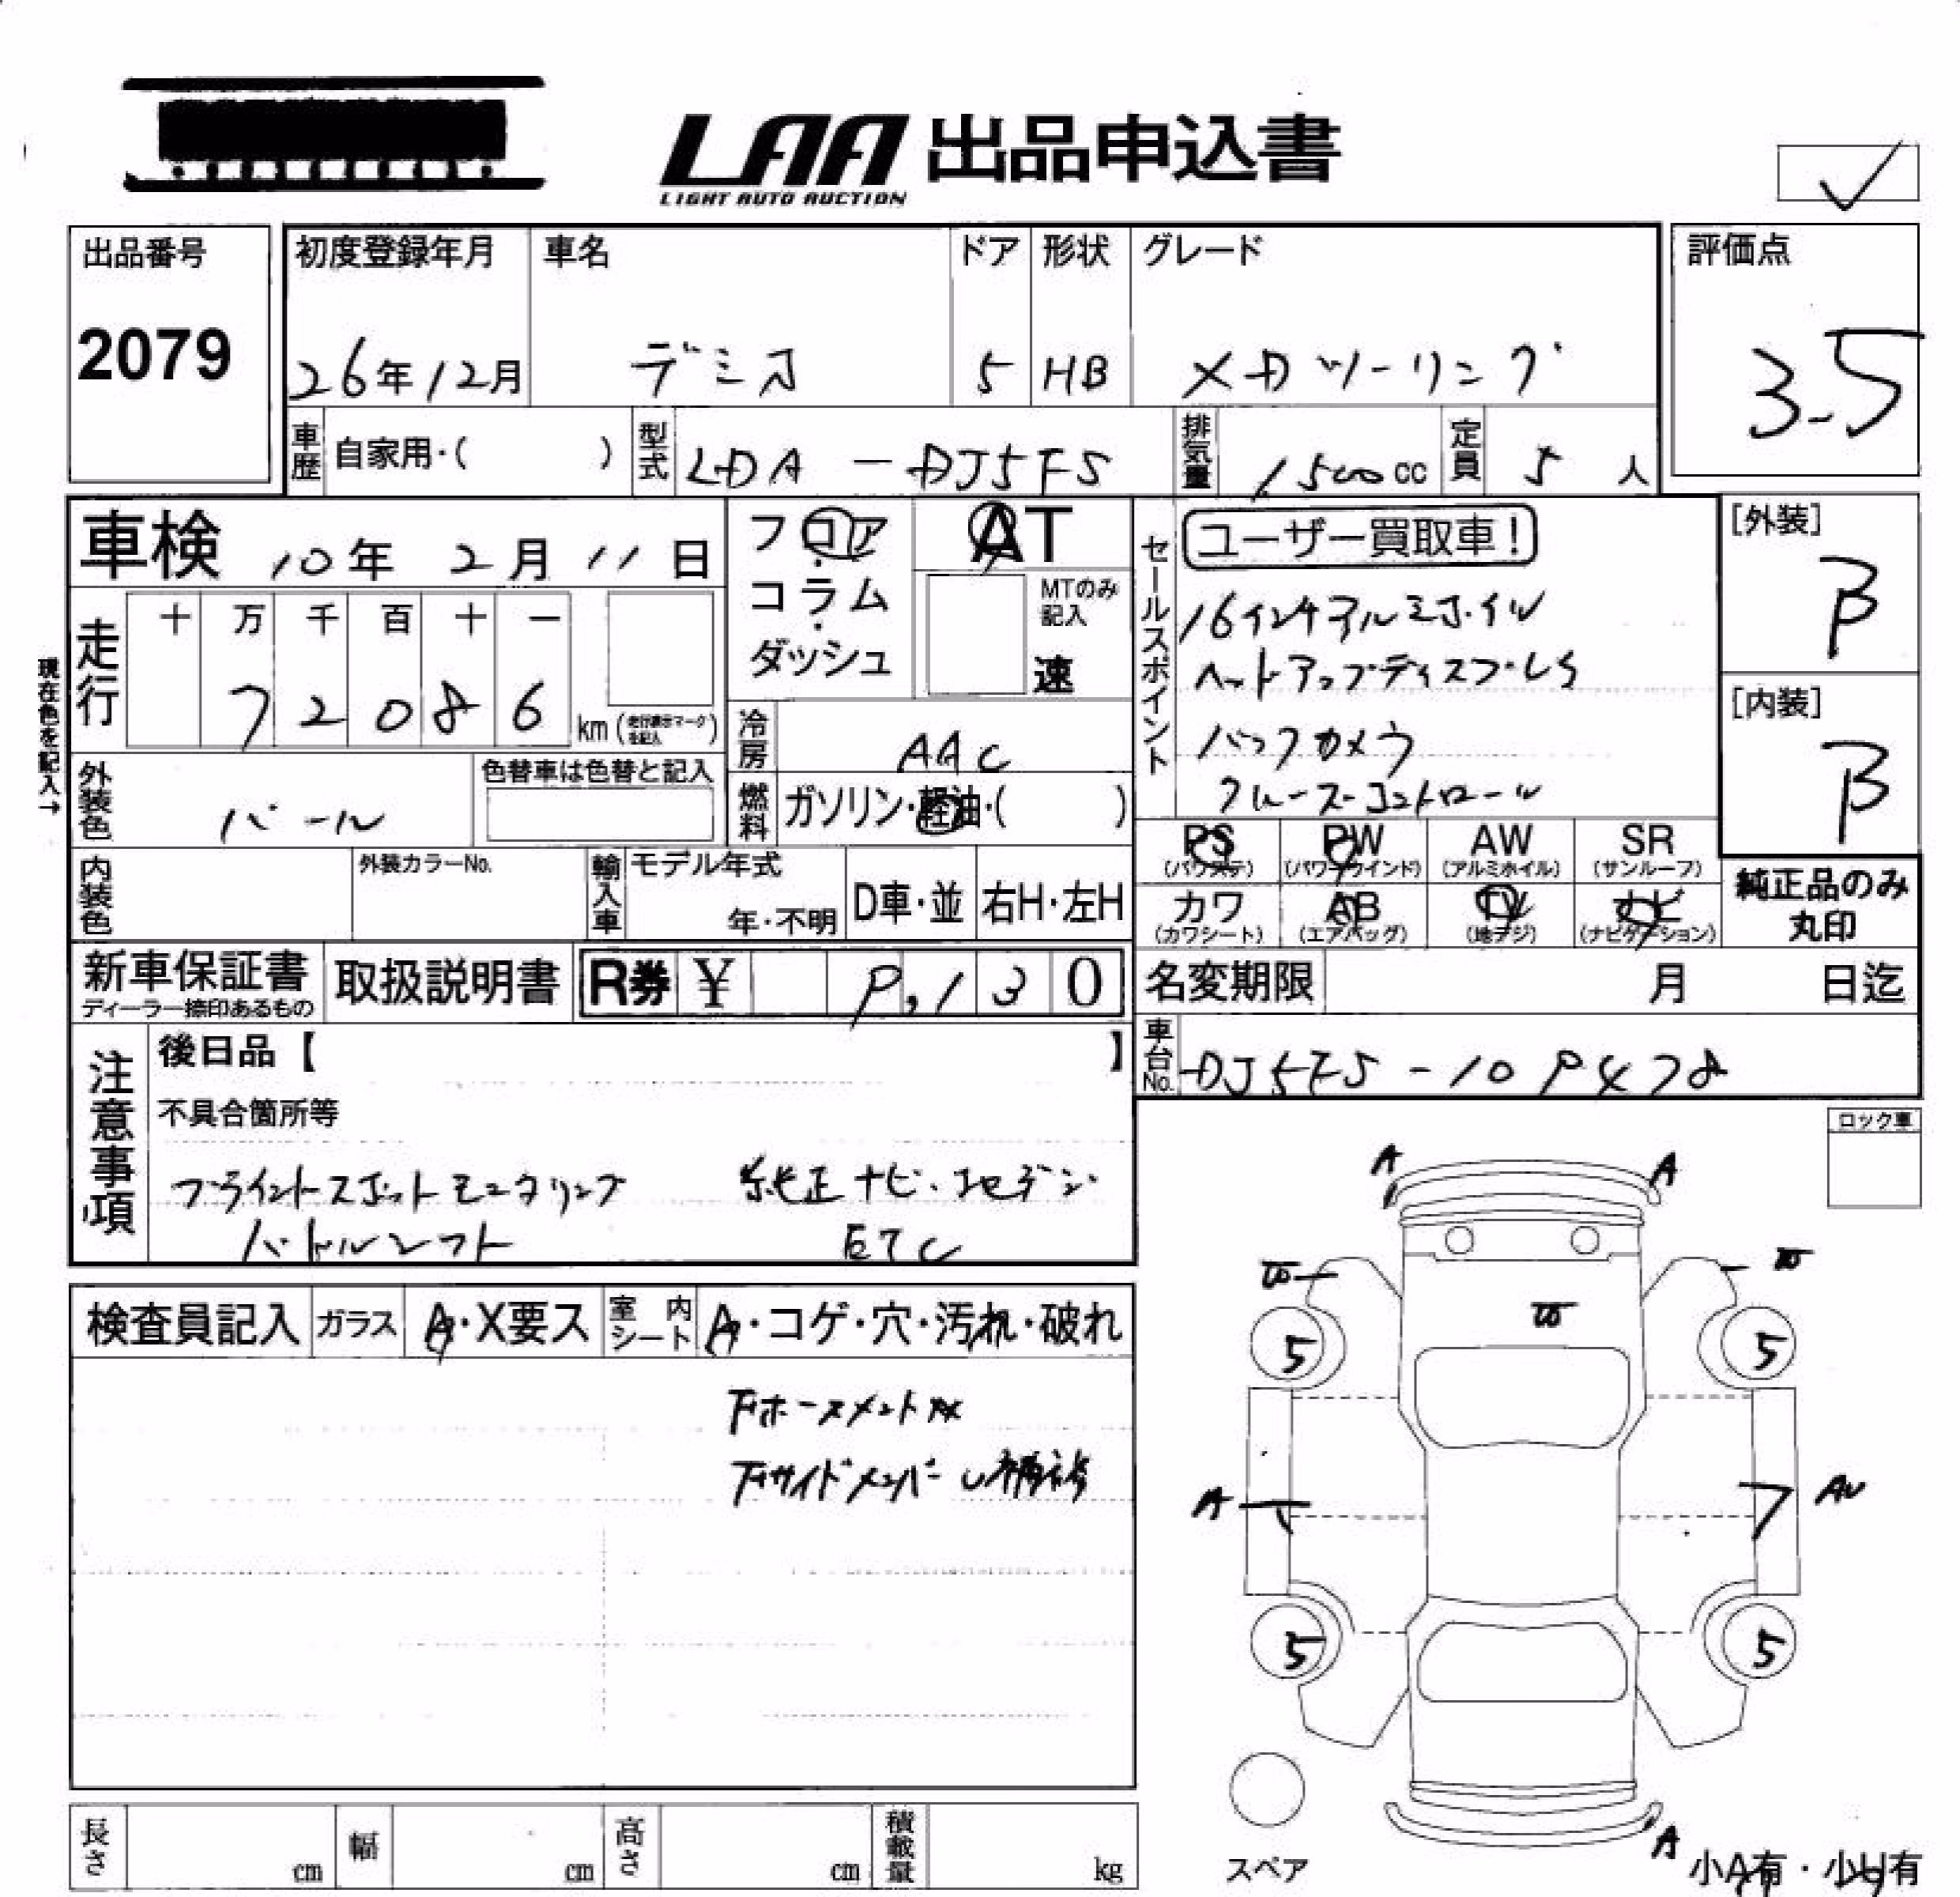 LAA 出品申込書
LIGHT AUTO AUCTION
出品番号
2079
初度登録年月
26年12月
車名
デミオ
ドア
5
形状
HB
グレード
XDツーリング
評価点
3.5
車歴 自家用・( )
型式 LDA-DJ5FS
排気量 1,500cc
定員 5人
車検 10年2月11日
フロア
コラム
ダッシュ
AT
MTのみ記入
速
現在色を記入→
走行
十 万 千 百 十 一
7 2 0 8 6 km (走行表示マークを記入)
冷房 AAC
外装色 パール
色替車は色替と記入
燃料 ガソリン・軽油・( )
セールスポイント
ユーザー買取車!
16インチアルミホイル
ヘッドアップディスプレイ
バックカメラ
クルーズコントロール
[外装]
B
[内装]
B
内装色
外装カラーNo.
輸入車
モデル年式
年・不明
D車・並
右H・左H
PS
(パワステ)
PW
(パワーウインド)
AW
(アルミホイル)
SR
(サンルーフ)
カワ
(カワシート)
AB
(エアバッグ)
TV
(地デジ)
ナビ
(ナビゲーション)
純正品のみ
丸印
新車保証書
ディーラー捺印あるもの
取扱説明書
R券 ¥ 9,130
名変期限 月 日迄
車台No. DJ5FS-109478
注意事項
後日品【 】
不具合箇所等
ブラインドスポットモニタリング 純正ナビ・フルセグデジ
パドルシフト ETC
ロック車
検査員記入
ガラス
A・X要ス
室内シート
A・コゲ・穴・汚れ・破れ
下サイドメンバーU補修
A A
5 5
A AU
5 5
A
スペア
小A有・小U有
長さ cm
幅 cm
高さ cm
積載量 kg